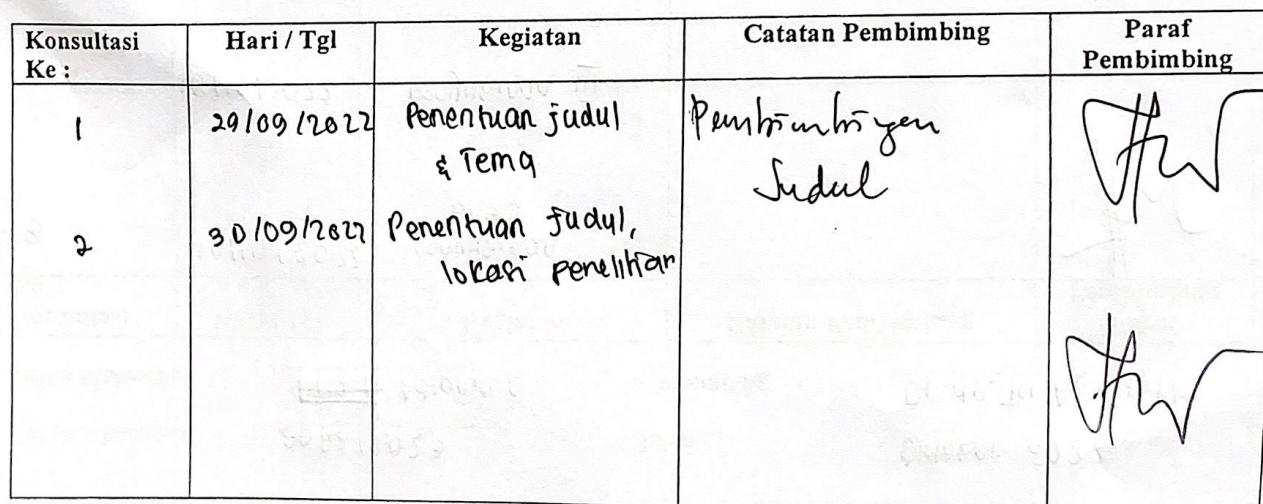 Konsultasi Ke :
Hari / Tgl
Kegiatan
Catatan Pembimbing
Paraf Pembimbing
1
29/09/2022
Penentuan judul
& Tema
Pembimbingan
Judul
2
30/09/2022
Penentuan Judul,
lokasi penelitian